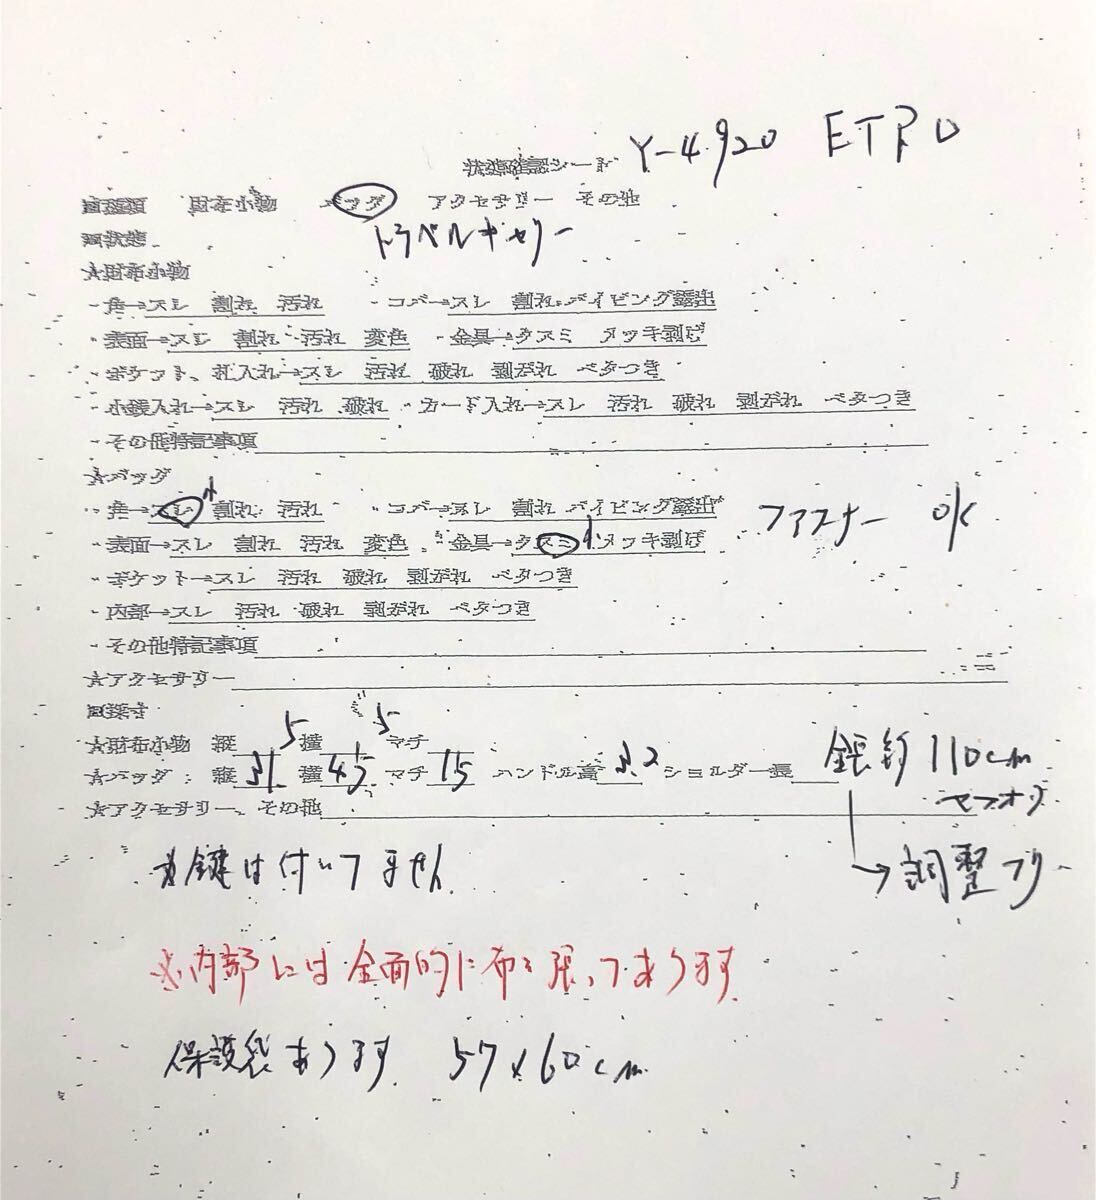 Y-4920 ETRO
状態確認シート
■種類 財布小物 バッグ アクセサリー その他
トラベルキャリー
■状態
★財布小物
・角→スレ 割れ 汚れ ・コバ→スレ 割れ パイピング露出
・表面→スレ 割れ 汚れ 変色 ・金具→クスミ メッキ剥げ
・ポケット、札入れ→スレ 汚れ 破れ 剥がれ ベタつき
・小銭入れ→スレ 汚れ 破れ ・カード入れ→スレ 汚れ 破れ 剥がれ ベタつき
・その他特記事項
★バッグ
・角→スレ 小 割れ 汚れ ・コバ→スレ 割れ パイピング露出 ファスナー OK
・表面→スレ 割れ 汚れ 変色 ・金具→クスミ 小 メッキ剥げ
・ポケット→スレ 汚れ 破れ 剥がれ ベタつき
・内部→スレ 汚れ 破れ 剥がれ ベタつき
・その他特記事項
★アクセサリー
■採寸
★財布小物 縦 横 マチ
5 5
★バッグ: 縦 31 横 45 マチ 15 ハンドル高 32 ショルダー長 110cm
★アクセサリー、その他
→調整フリー
※鍵は付いてません
※内部には全面的に布を張ってあります
保護袋あります 57×60cm